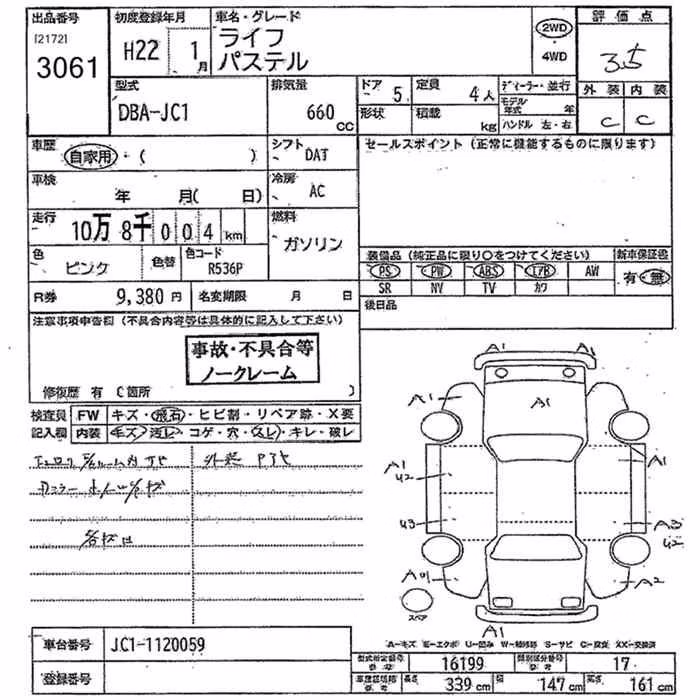 出品番号 初度登録年月 車名・グレード 評価点
[2172]
3061
H22 1月
ライフ
パステル
2WD
4WD
3.5
型式 排気量 ドア 定員 ディーラー・並行 外装 内装
DBA-JC1 660 CC 5 4人
形状 積載 kg
モデル年式 年
ハンドル 左・右
C C
車歴 自家用・( )
シフト DAT
セールスポイント (正常に機能するものに限ります)
車検 年 月( 日)
冷房 AC
走行 10万8千004km
燃料 ガソリン
色 ピンク 色替 色コード R536P
装備品 (純正品に限り○をつけてください) 新車保証書
PS PW ABS エアB AW 有・無
SR NV TV カワ
R券 9,380円 名変期限 月 日
後日品
注意事項申告欄 (不具合内容等は具体的に記入して下さい)
事故・不具合等
ノークレーム
修復歴 有 (箇所 )
検査員 FW キズ・飛石・ヒビ割・リペア跡・X要
記入欄 内装 キズ・汚レ・コゲ・穴・スレ・キレ・破レ
A1 A1
A1
A1
A1
U2
A1
U3
A3
U2
A2
スペア
A1
A-キズ E-エクボ U-凹み W-補修跡 S-サビ C-腐食 XX-交換済
車台番号 JC1-1120059
登録番号
型式指定番号 参考 16199 類別区分番号 参考 17
車両寸法 参考 長さ 339cm 幅 147cm 高さ 161cm